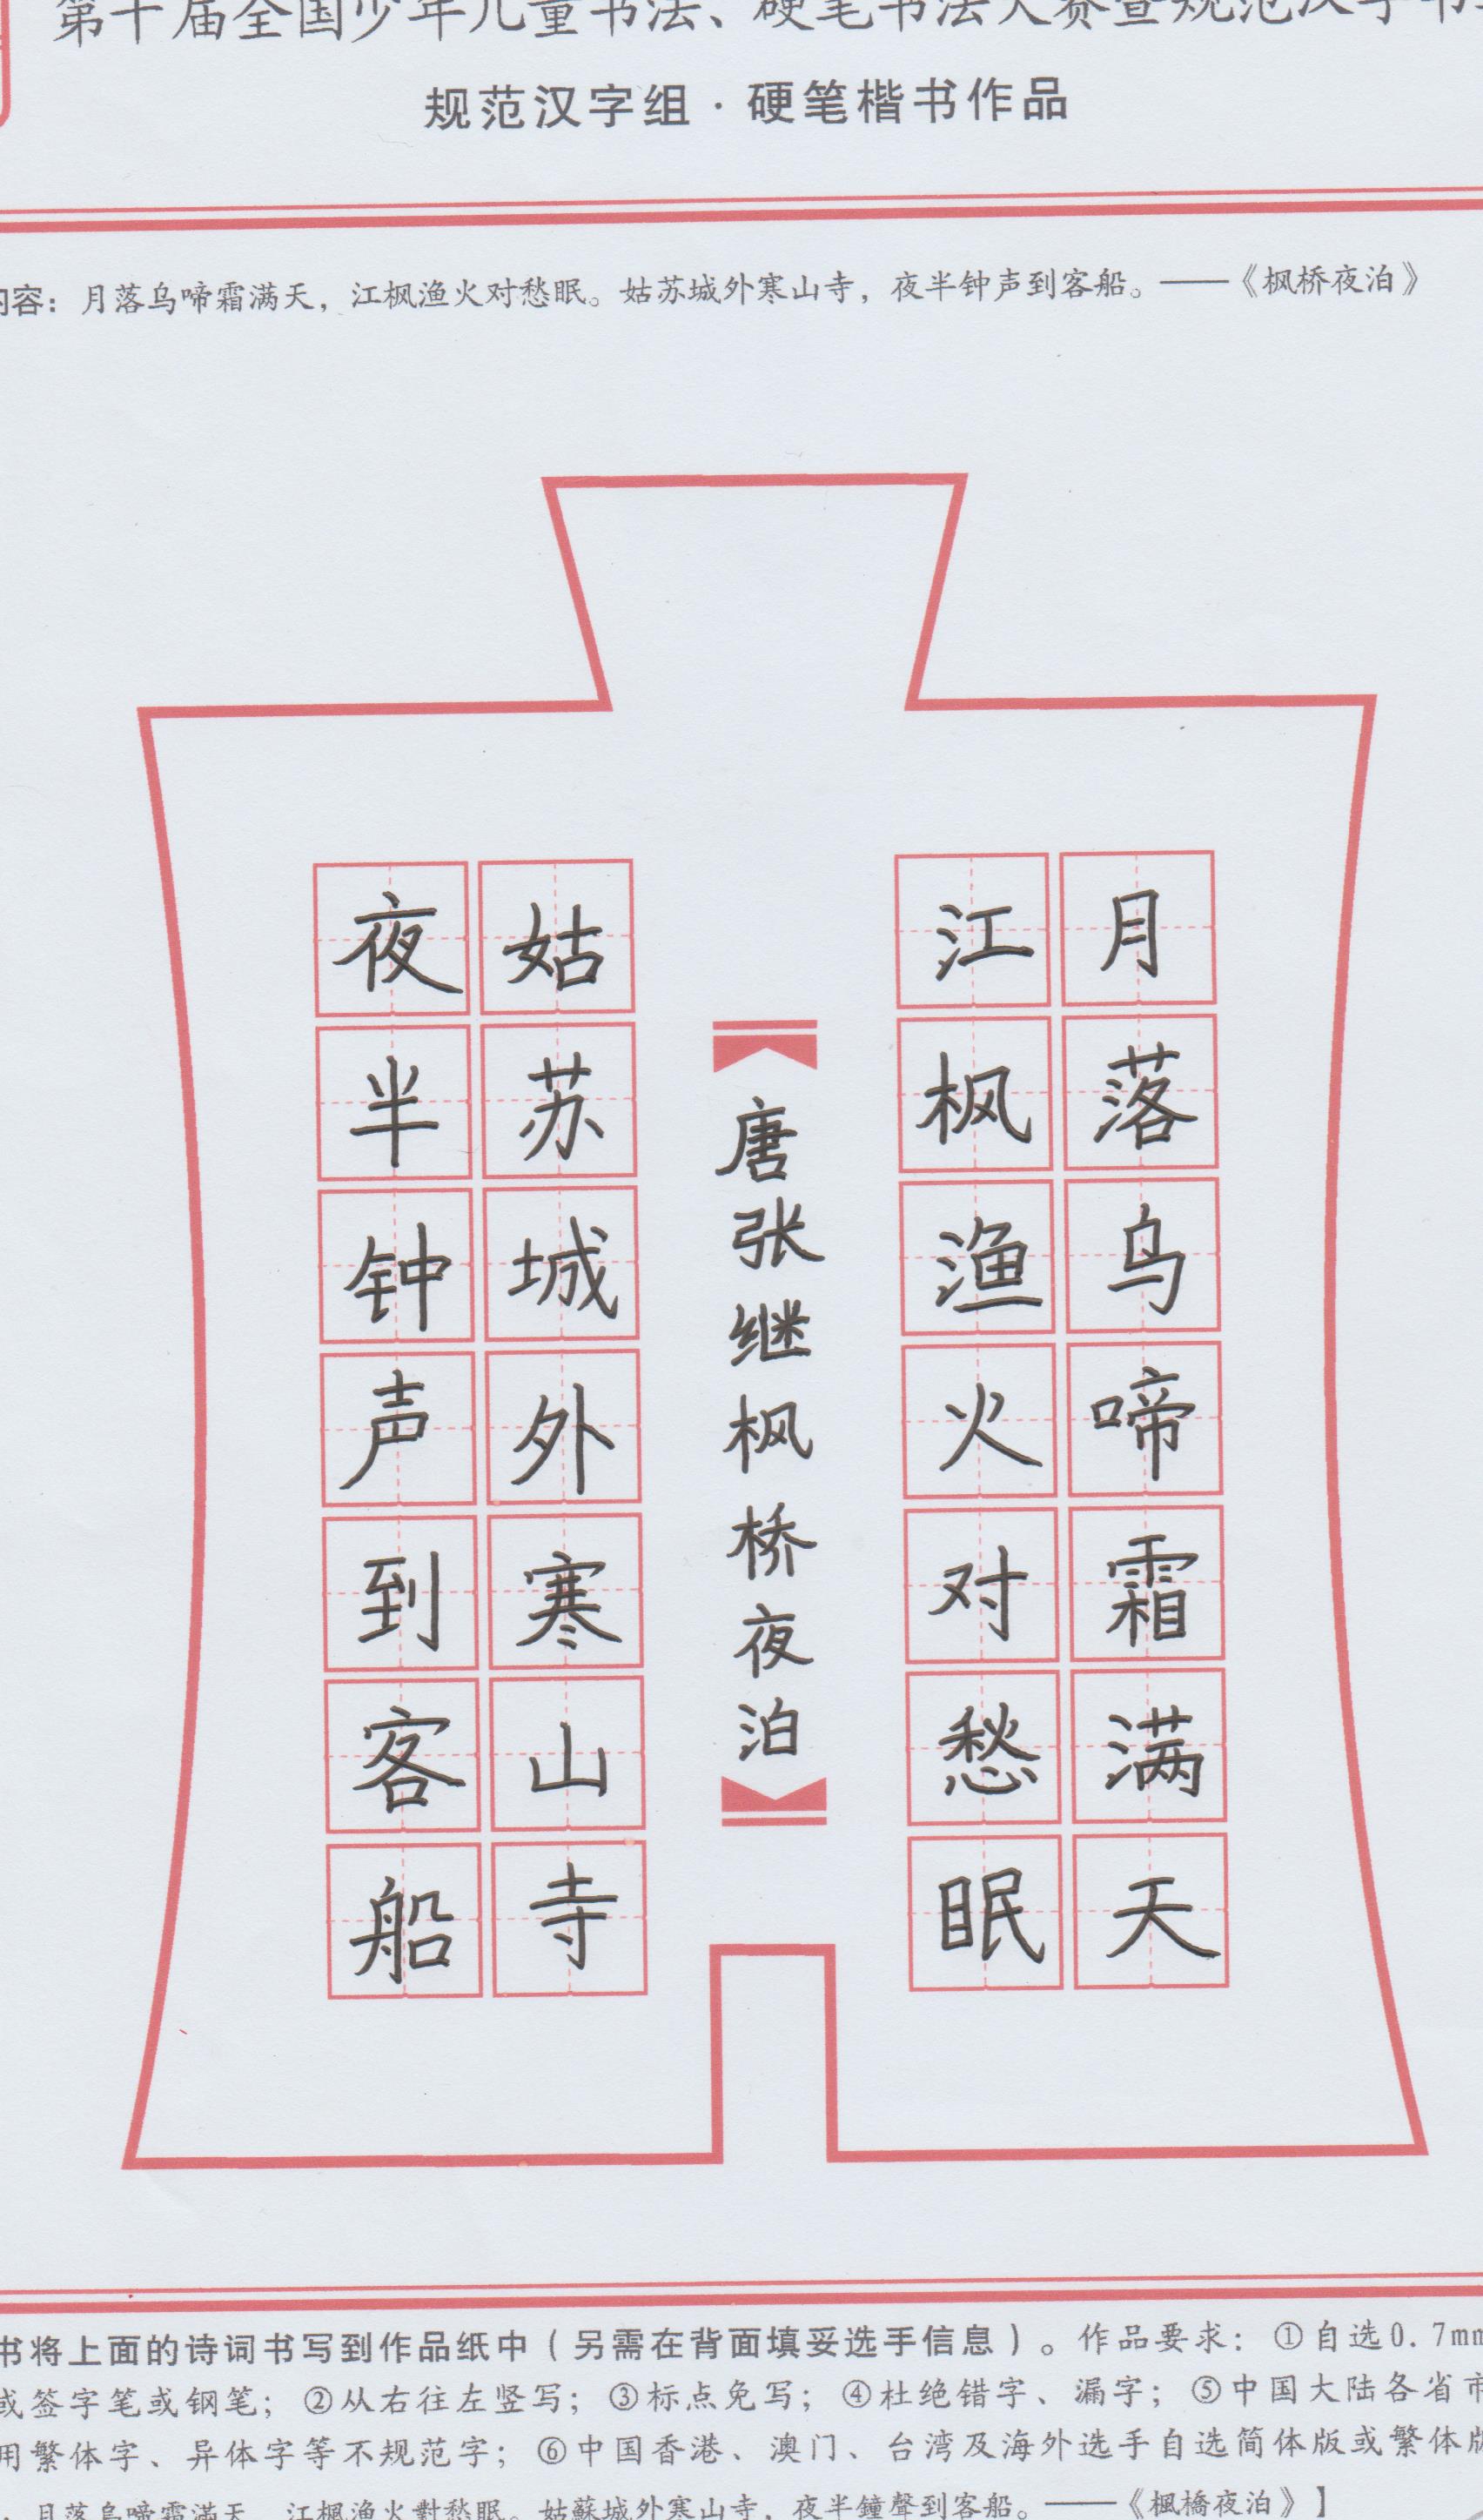 第十届全国少年儿童书法、硬笔书法大赛暨规范汉字书
规范汉字组·硬笔楷书作品
内容：月落乌啼霜满天，江枫渔火对愁眠。姑苏城外寒山寺，夜半钟声到客船。——《枫桥夜泊》
月落乌啼霜满天
江枫渔火对愁眠
【唐张继枫桥夜泊】
姑苏城外寒山寺
夜半钟声到客船
书将上面的诗词书写到作品纸中（另需在背面填妥选手信息）。作品要求：①自选0.7mm
或签字笔或钢笔；②从右往左竖写；③标点免写；④杜绝错字、漏字；⑤中国大陆各省市
用繁体字、异体字等不规范字；⑥中国香港、澳门、台湾及海外选手自选简体版或繁体版
：月落烏啼霜滿天，江楓漁火對愁眠。姑蘇城外寒山寺，夜半鐘聲到客船。——《楓橋夜泊》】